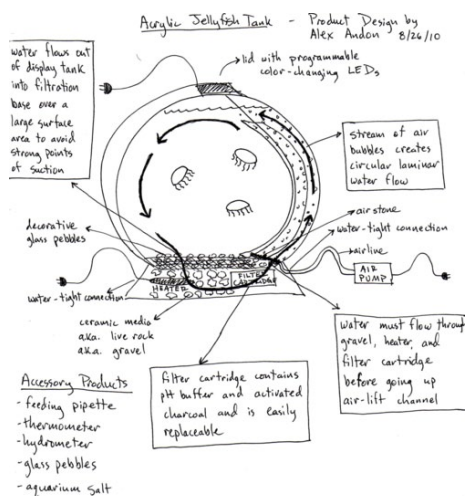 Acrylic Jellyfish Tank - Product Design by
Alex Andon 8/26/10
water flows out
of display tank
into filtration
base over a
large surface
area to avoid
strong points
of suction
lid with programmable
color-changing LEDs
stream of air
bubbles creates
circular laminar
water flow
decorative
glass pebbles
air stone
water-tight connection
airline
AIR
PUMP
HEATER
FILTER
CARTRIDGE
water-tight connection
ceramic media
a.k.a. live rock
a.k.a. gravel
water must flow through
gravel, heater, and
filter cartridge
before going up
air-lift channel
filter cartridge contains
pH buffer and activated
charcoal and is easily
replaceable
Accessory Products
- feeding pipette
- thermometer
- hydrometer
- glass pebbles
- aquarium salt